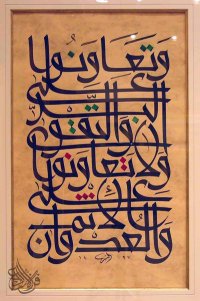 وَتَعَاوَنُوا
عَلَى
الْبِرِّ
وَالتَّقْوَى
وَلَا تَعَاوَنُوا
عَلَى الْإِثْمِ
وَالْعُدْوَانِ